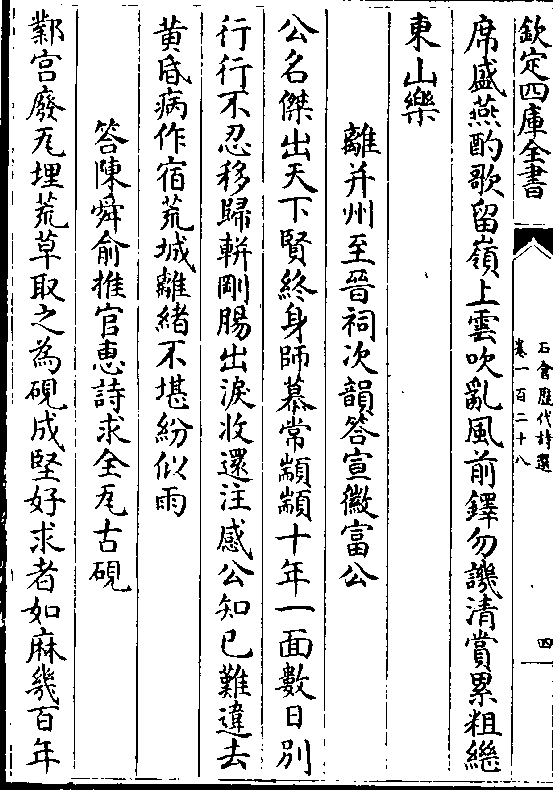 欽定四庫全書
石倉歷代詩選
卷一百二十八
四
席盛燕酌歌留嶺上雲吹亂風前鐸勿譏清賞累粗繼
東山樂
離并州至晉祠次韻答宣徽富公
公名傑出天下賢終身師慕常顓顓十年一面數日別
行行不忍移歸軿剛腸出淚收還注感公知已難違去
黄昏病作宿荒城離緒不堪紛似雨
答陳舜俞推官惠詩求全瓦古硯
鄴宫廢瓦埋荒草取之為硯成堅好求者如麻幾百年